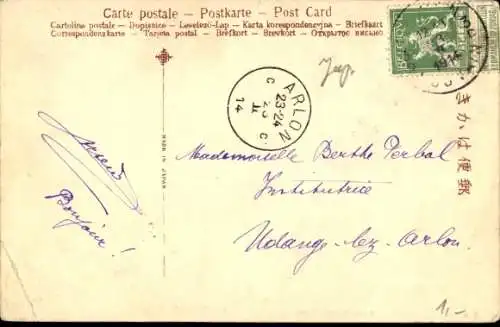 Carte postale - Postkarte - Post Card
Cartolina postale - Dopisnice - Levelezö-Lap - Karta korespondencyjna - Briefkaart
Correspondenzkarte - Tarjeta postal - Brefkort - Brevkort - Открытое письмо.
Jap.
ARLON
23-24
14
きかは便郵
Mademoiselle Berthe Perbal
Institutrice
Udange-lez-Arlon.
Bonjour!
MADE IN JAPAN
1,-